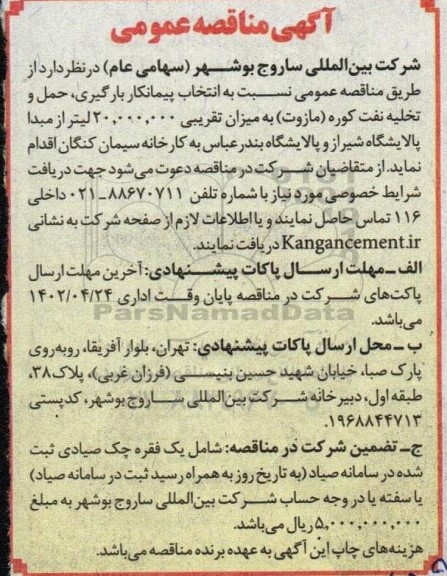 آگهی مناقصه عمومی
شرکت بین‌المللی ساروج بوشـــهر (سهامی عام) در نظر دارد از
طریق مناقصه عمومی نســبت به انتخاب پیمانکار بارگیری، حمل و
تخلیه نفت کوره (مازوت) به میزان تقریبی ۲۰,۰۰۰,۰۰۰ لیتر از مبدا
پالایشگاه شیراز و پالایشگاه بندرعباس به کارخانه سیمان کنگان اقدام
نماید. از متقاضیان شـــرکت در مناقصه دعوت می‌شود جهت دریافت
شرایط خصوصی مورد نیاز با شماره تلفن ۸۸۶۷۰۷۱۱-۰۲۱ داخلی
۱۱۶ تماس حاصل نمایند و یا اطلاعات لازم از صفحه شرکت به نشانی
Kangancement.ir دریافت نمایند.
الف ـ مهلت ارســـال پاکات پیشـــنهادی: آخرین مهلت ارسال
پاکت‌های شـــرکت در مناقصه پایان وقـــت اداری ۱۴۰۲/۰۴/۲۴
می‌باشد.
ParsNamadData
ب ـ محل ارسال پاکات پیشنهادی: تهران، بلوار آفریقا، روبه‌روی
پارک صبا، خیابان شهید حسین بنیســی (فرزان غربی)، پلاک ۳۸،
طبقه اول، دبیرخانه شــرکت بین‌المللی ســـاروج بوشهر، کدپستی
۱۹۶۸۸۴۴۷۱۳.
ج ـ تضمین شرکت در مناقصه: شامل یک فقره چک صیادی ثبت
شده در سامانه صیاد (به تاریخ روز به همراه رسید ثبت در سامانه صیاد)
یا سفته یا در وجه حساب شـــرکت بین‌المللی ساروج بوشهر به مبلغ
۵,۰۰۰,۰۰۰,۰۰۰ ریال می‌باشد.
هزینه‌های چاپ این آگهی به عهده برنده مناقصه می‌باشد.